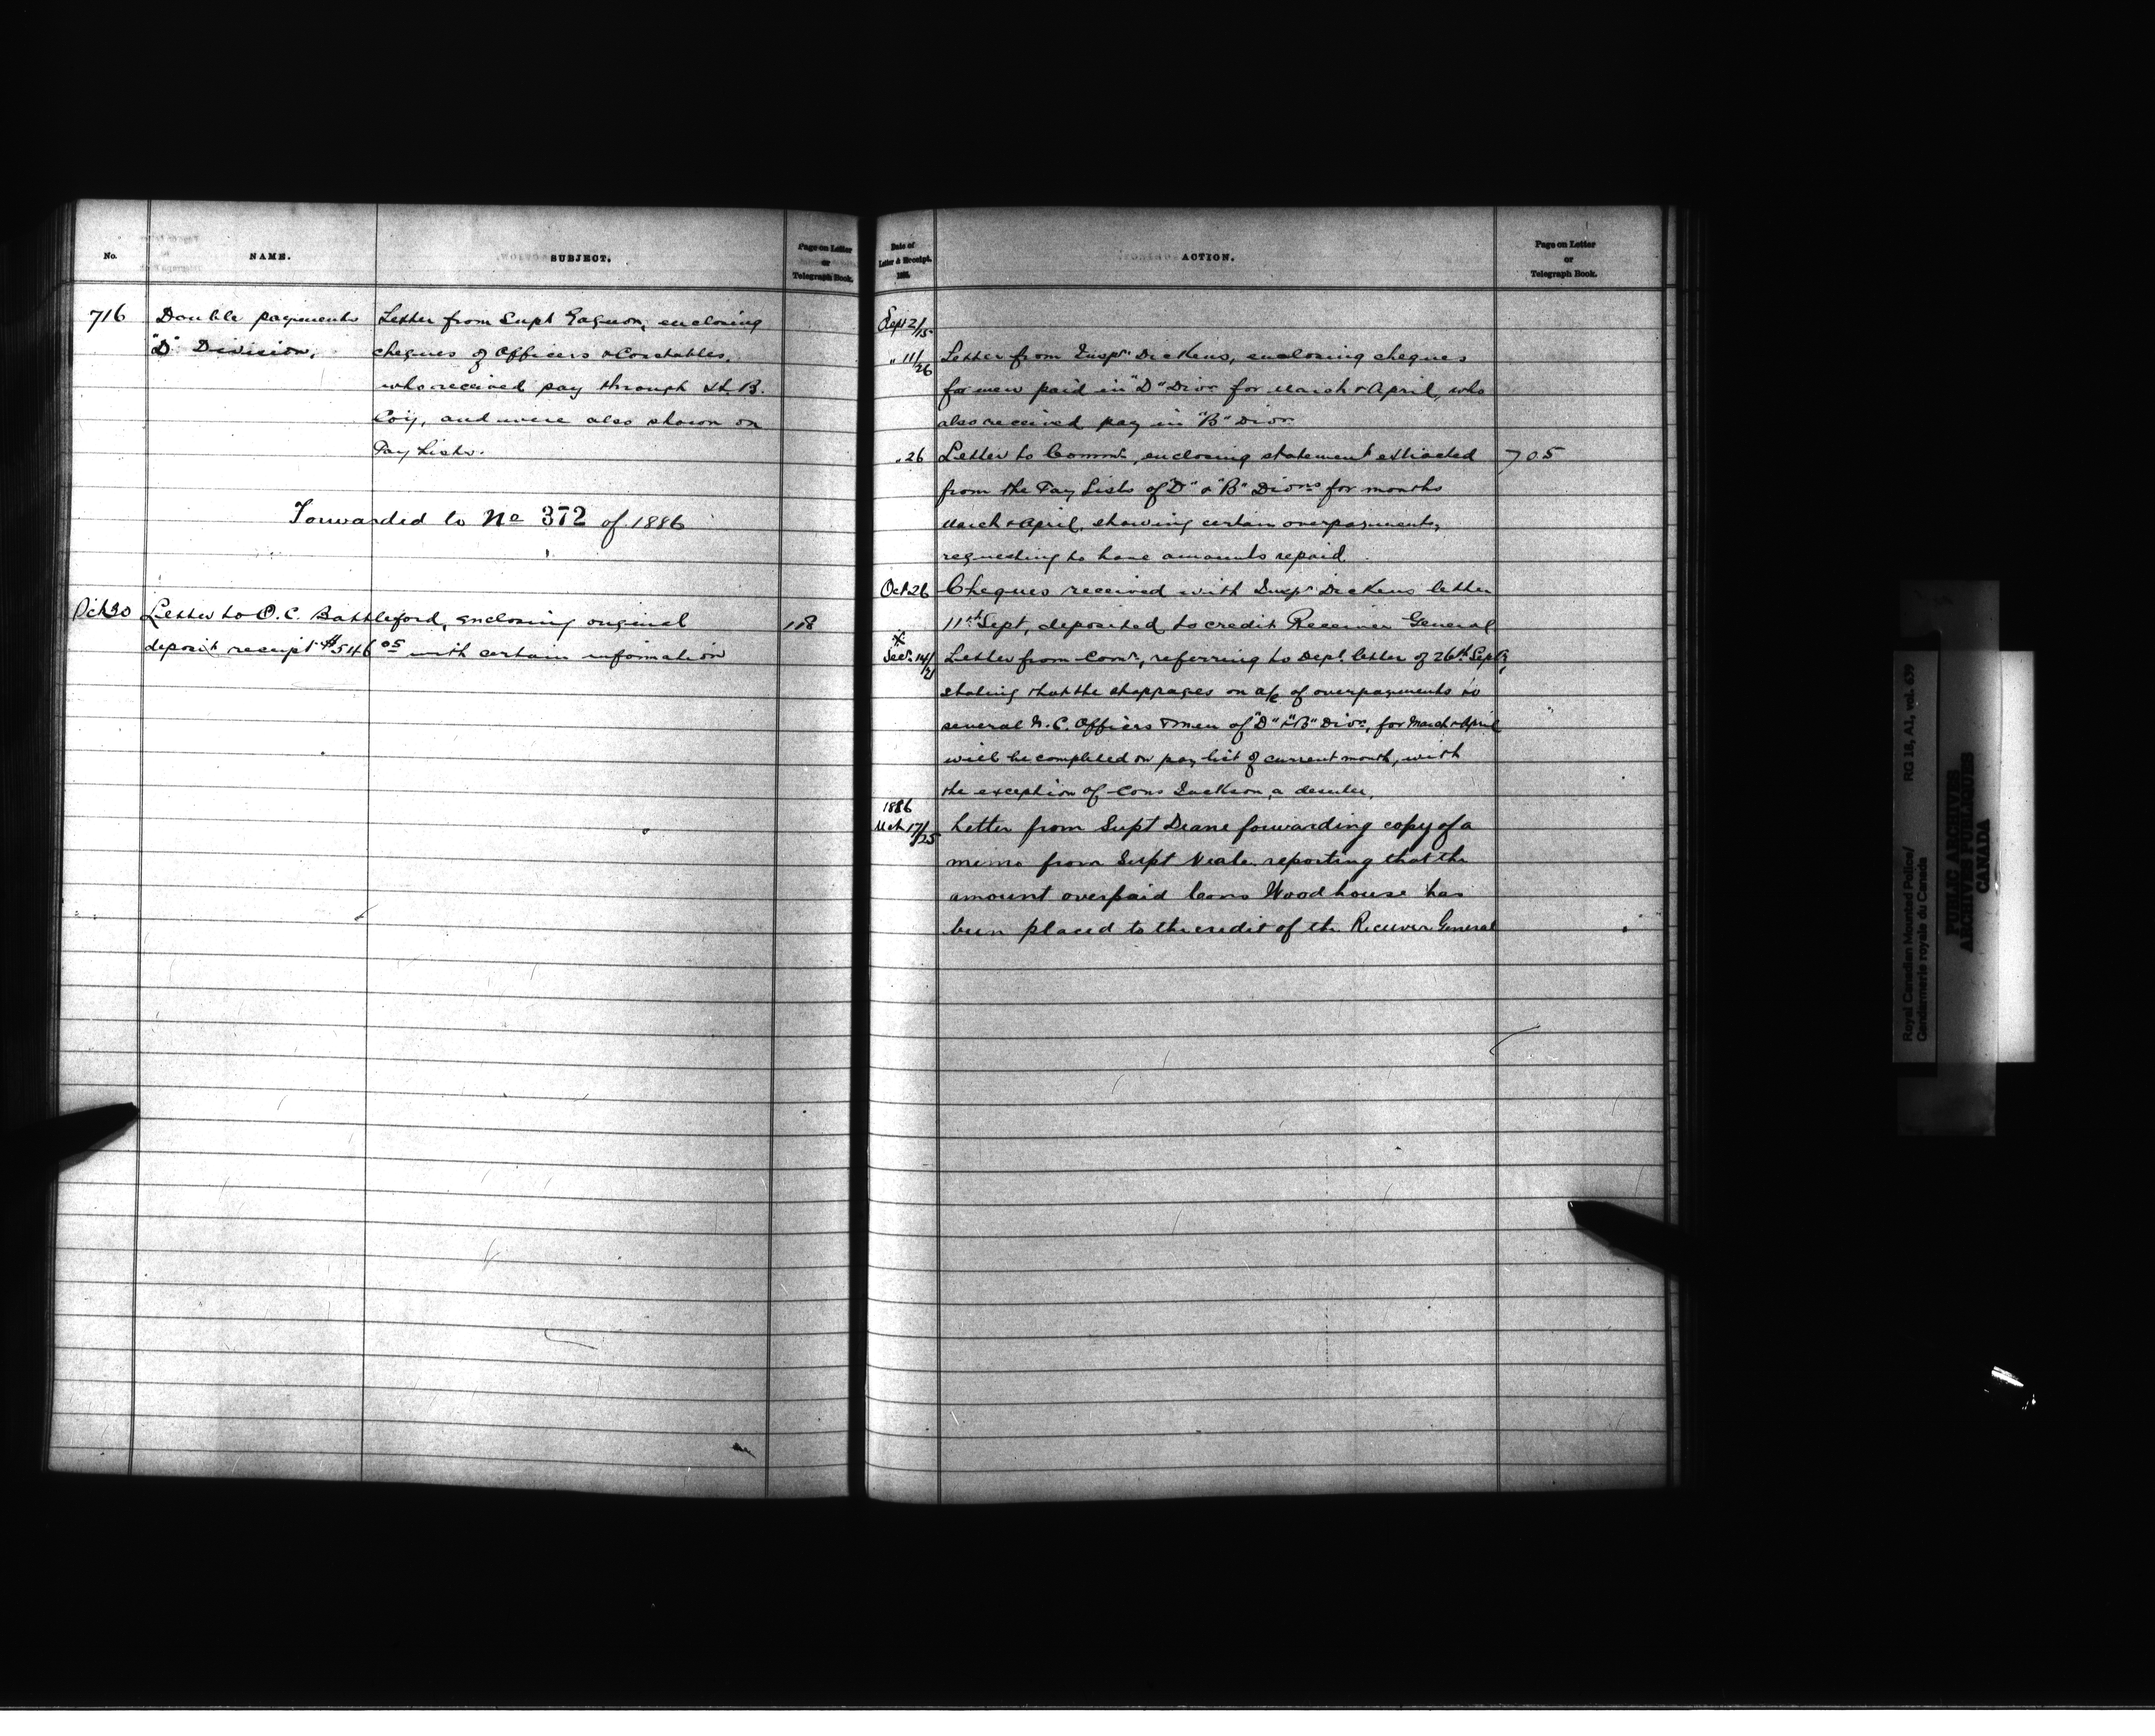 No.
NAME.
SUBJECT.
Page on Letter
or
Telegraph Book.
716
Double payments
"D" Division,
Letter from Supt Gagnon, enclosing
cheques of Officers & Constables,
who received pay through H. B.
Coy, and were also shown on
Pay Lists.
Forwarded to No 372 of 1886
Oct 30 Letter to O. C. Battleford, enclosing original 118
deposit receipt $546 05 with certain information
Date of
Letter & Receipt.
188
ACTION.
Page on Letter
or
Telegraph Book.
Sept 2/15
" 11/26 Letter from Inspr Dickens, enclosing cheques
for men paid in "D" Divn for March & April, who
also received pay in "B" Divn
" 26 Letter to Commr, enclosing statement extracted 705
from the Pay Lists of "D" & "B" Divns for months
March & April, showing certain overpayments,
requesting to have amounts repaid
Oct 26 Cheques received with Inspr Dickens letter
11th Sept, deposited to credit Receiver General
x
Decr 14/21 Letter from Comr, referring to Dept. letter of 26th Sept,
stating that the stoppages on a/c of overpayments to
several N. C. Officers & men of "D" & "B" Divn, for March & April
will be completed on pay list of current month, with
the exception of Cons Jackson, a deserter.
1886
Mch 17/25 Letter from Supt Deane forwarding copy of a
memo from Supt Neale reporting that the
amount overpaid Cons Woodhouse has
been placed to the credit of the Receiver General
Royal Canadian Mounted Police/ RG 18, A1, vol. 639
Gendarmerie royale du Canada
PUBLIC ARCHIVES
ARCHIVES PUBLIQUES
CANADA